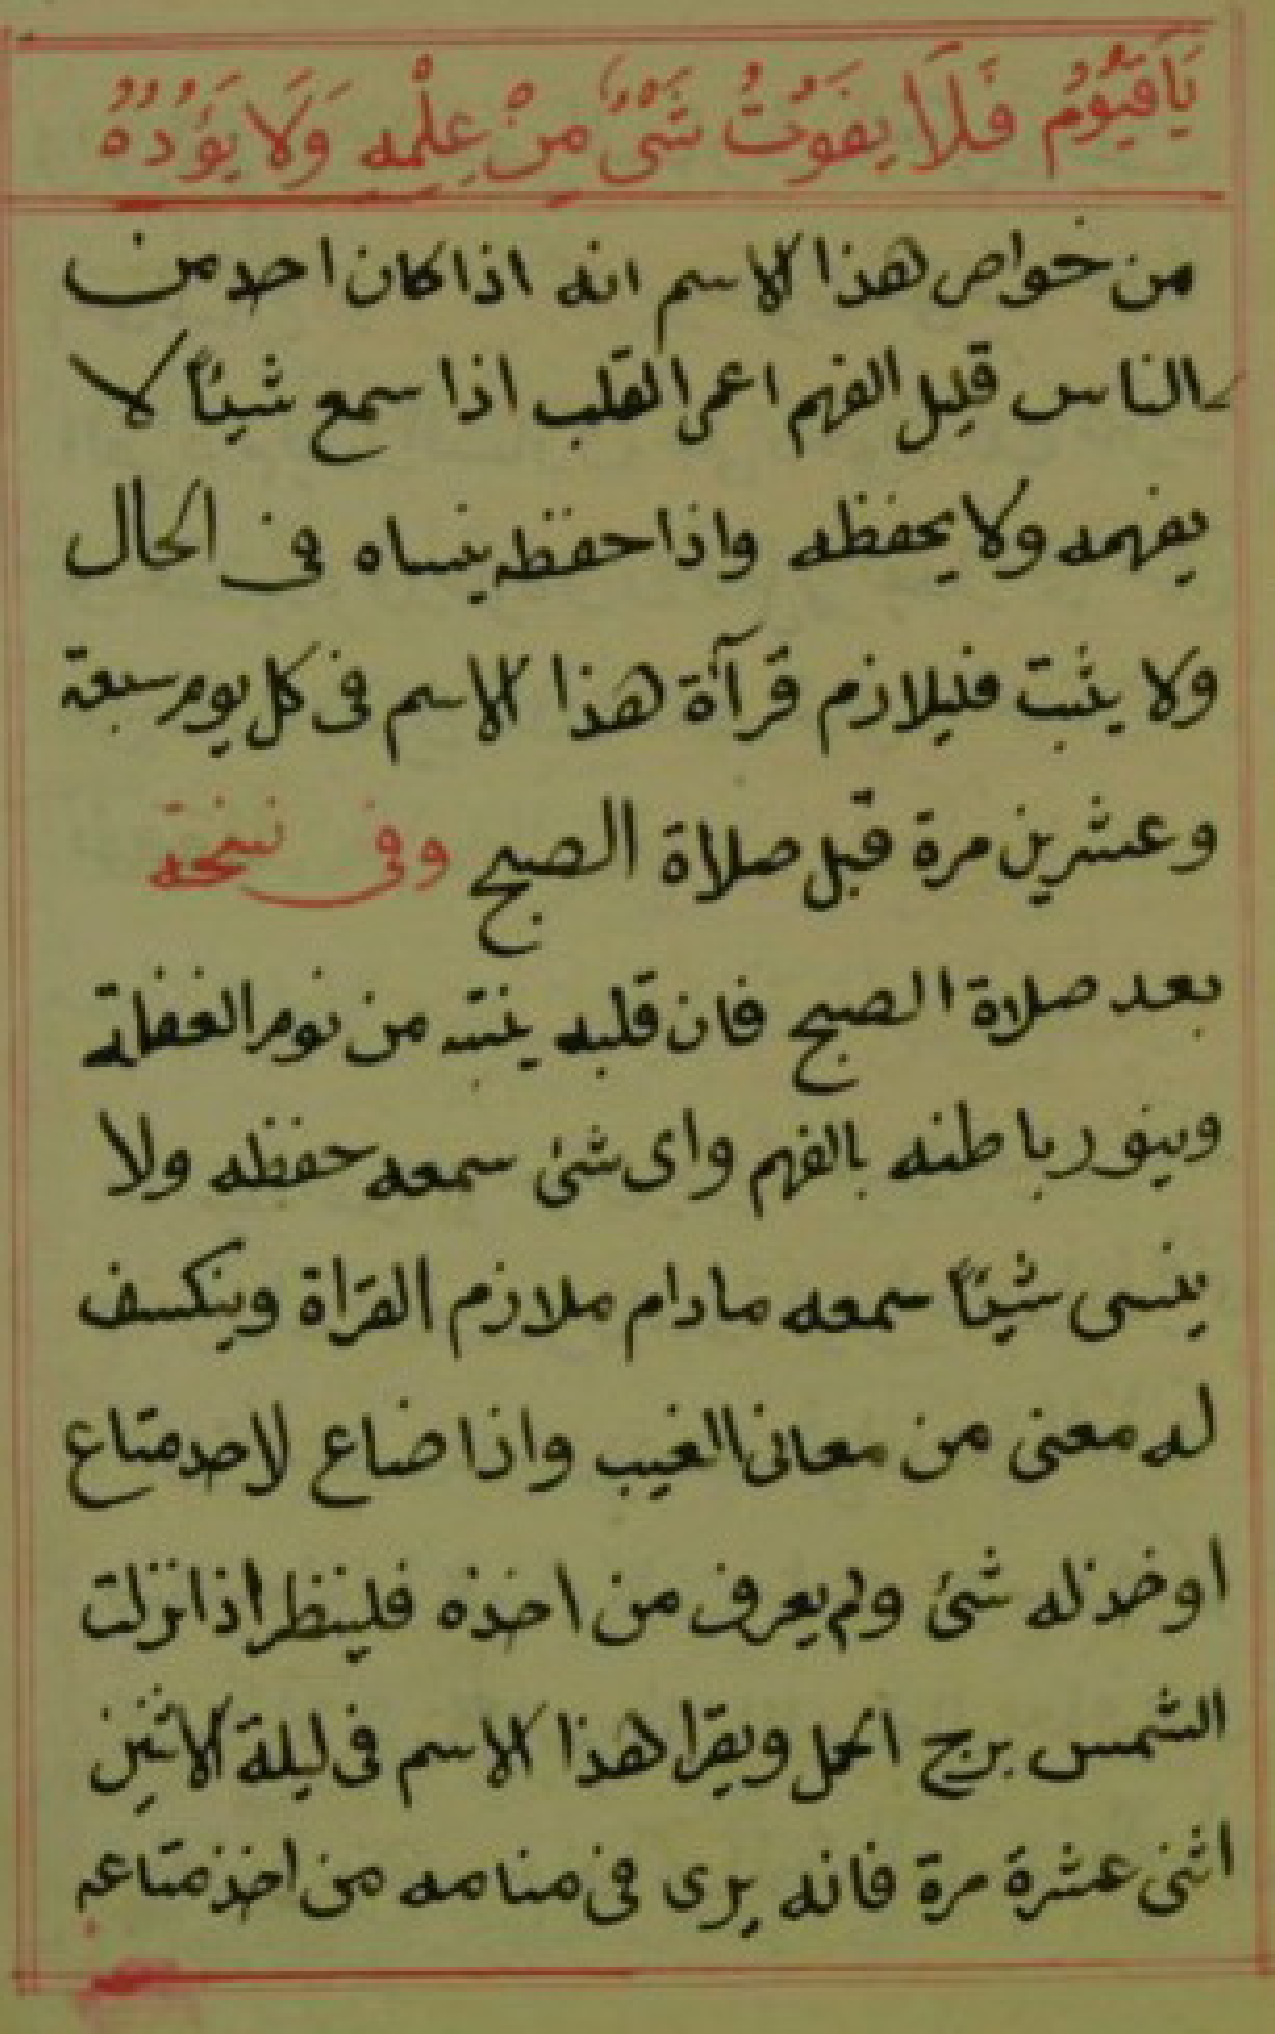 يَا قَيُّومُ فَلَا يَفُوتُ شَىْءٌ مِنْ عِلْمِهِ وَلَا يَؤُدُهُ
من خواص هذا الاسم انه اذا كان احد من
الناس قليل الفهم اعمى القلب اذا سمع شيئاً لا
يفهمه ولا يحفظه واذا حفظه ينساه فى الحال
ولا يثبت فليلازم قرآأة هذا الاسم فى كل يوم سبعة
وعشرين مرة قبل صلاة الصبح وفى نسخة
بعد صلاة الصبح فان قلبه ينتبه من نوم الغفلة
وينور باطنه بالفهم واى شئ سمعه حفظه ولا
ينسى شيئاً سمعه مادام ملازم القرأة وينكسف
له معنى من معانى الغيب واذا ضاع لاحد متاع
او خذ له شئ ولم يعرف من اخذه فلينظر اذا نزلت
الشمس برج الحمل ويقرا هذا الاسم فى ليلة الاثنين
اثنى عشرة مرة فانه يرى فى منامه من اخذ متاعه